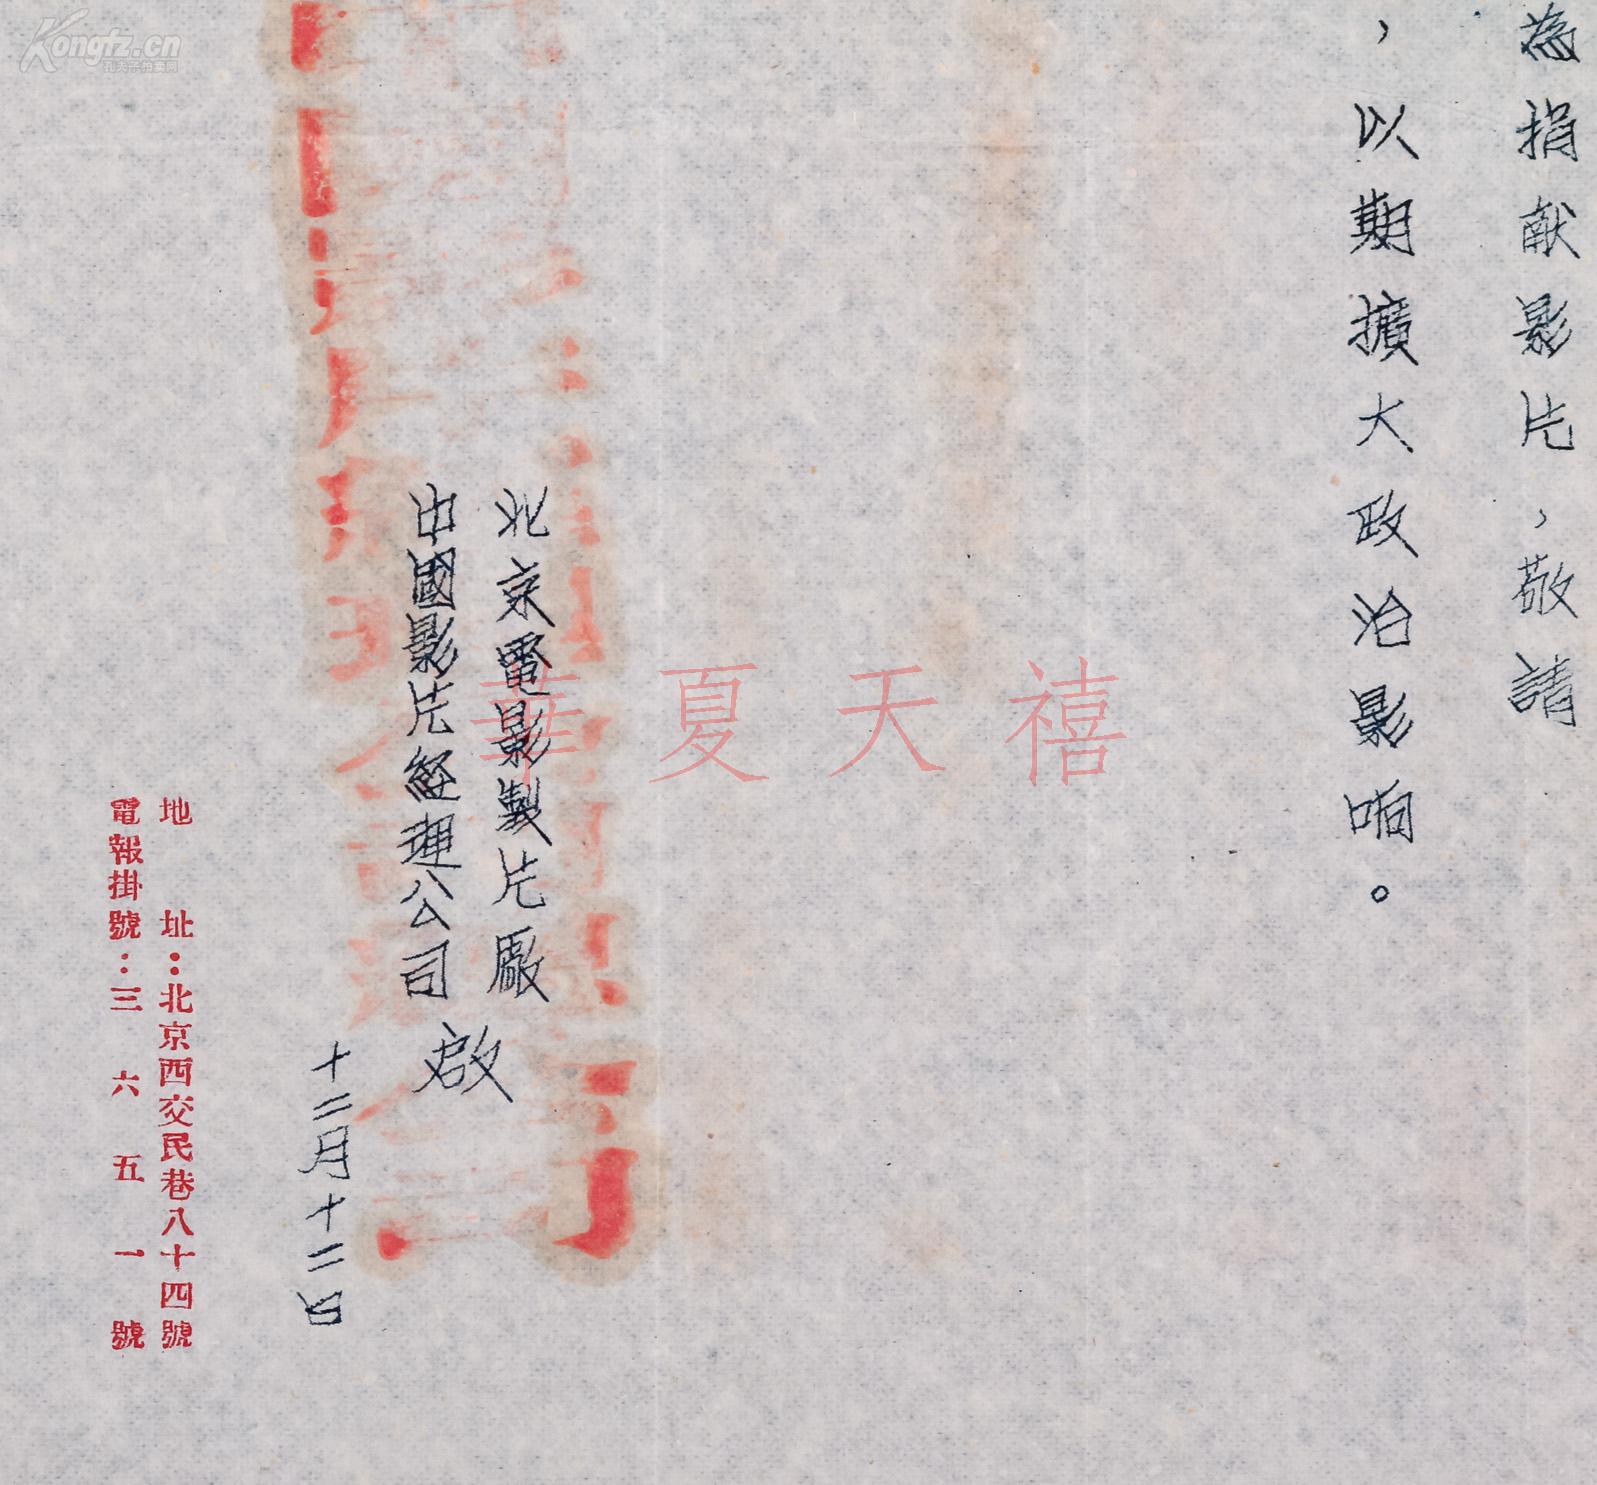 為捐献影片，敬請
，以期擴大政治影响。
北京電影製片廠
中國影片経理公司
啟
十二月十二日
地址：北京西交民巷八十四號
電報掛號：三六五一號
華夏天禧
Kongfz.cn
孔夫子拍卖网